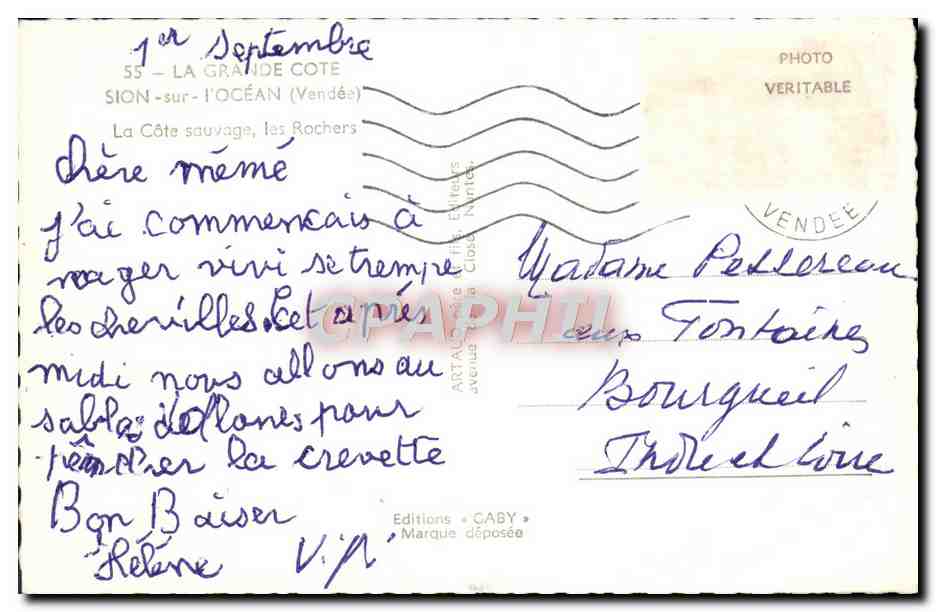 1er septembre
55 - LA GRANDE COTE
SION-sur-l'OCÉAN (Vendée)
La Côte sauvage, les Rochers
chère mémé
j'ai commencais à
nager vivi se trempe
les chevilles. Cet après
midi nous allons au
sable d'ollones pour
pêcher la crevette
Bon Baiser
Hélène Vivi
PHOTO
VERITABLE
VENDEE
Madame Pessereau
aux Fontaines
Bourgueil
Indre et Loire
ARTAUD père et fils, Editeurs
avenue de la Close, Nantes.
CPAPHIL
Editions « GABY »
Marque déposée